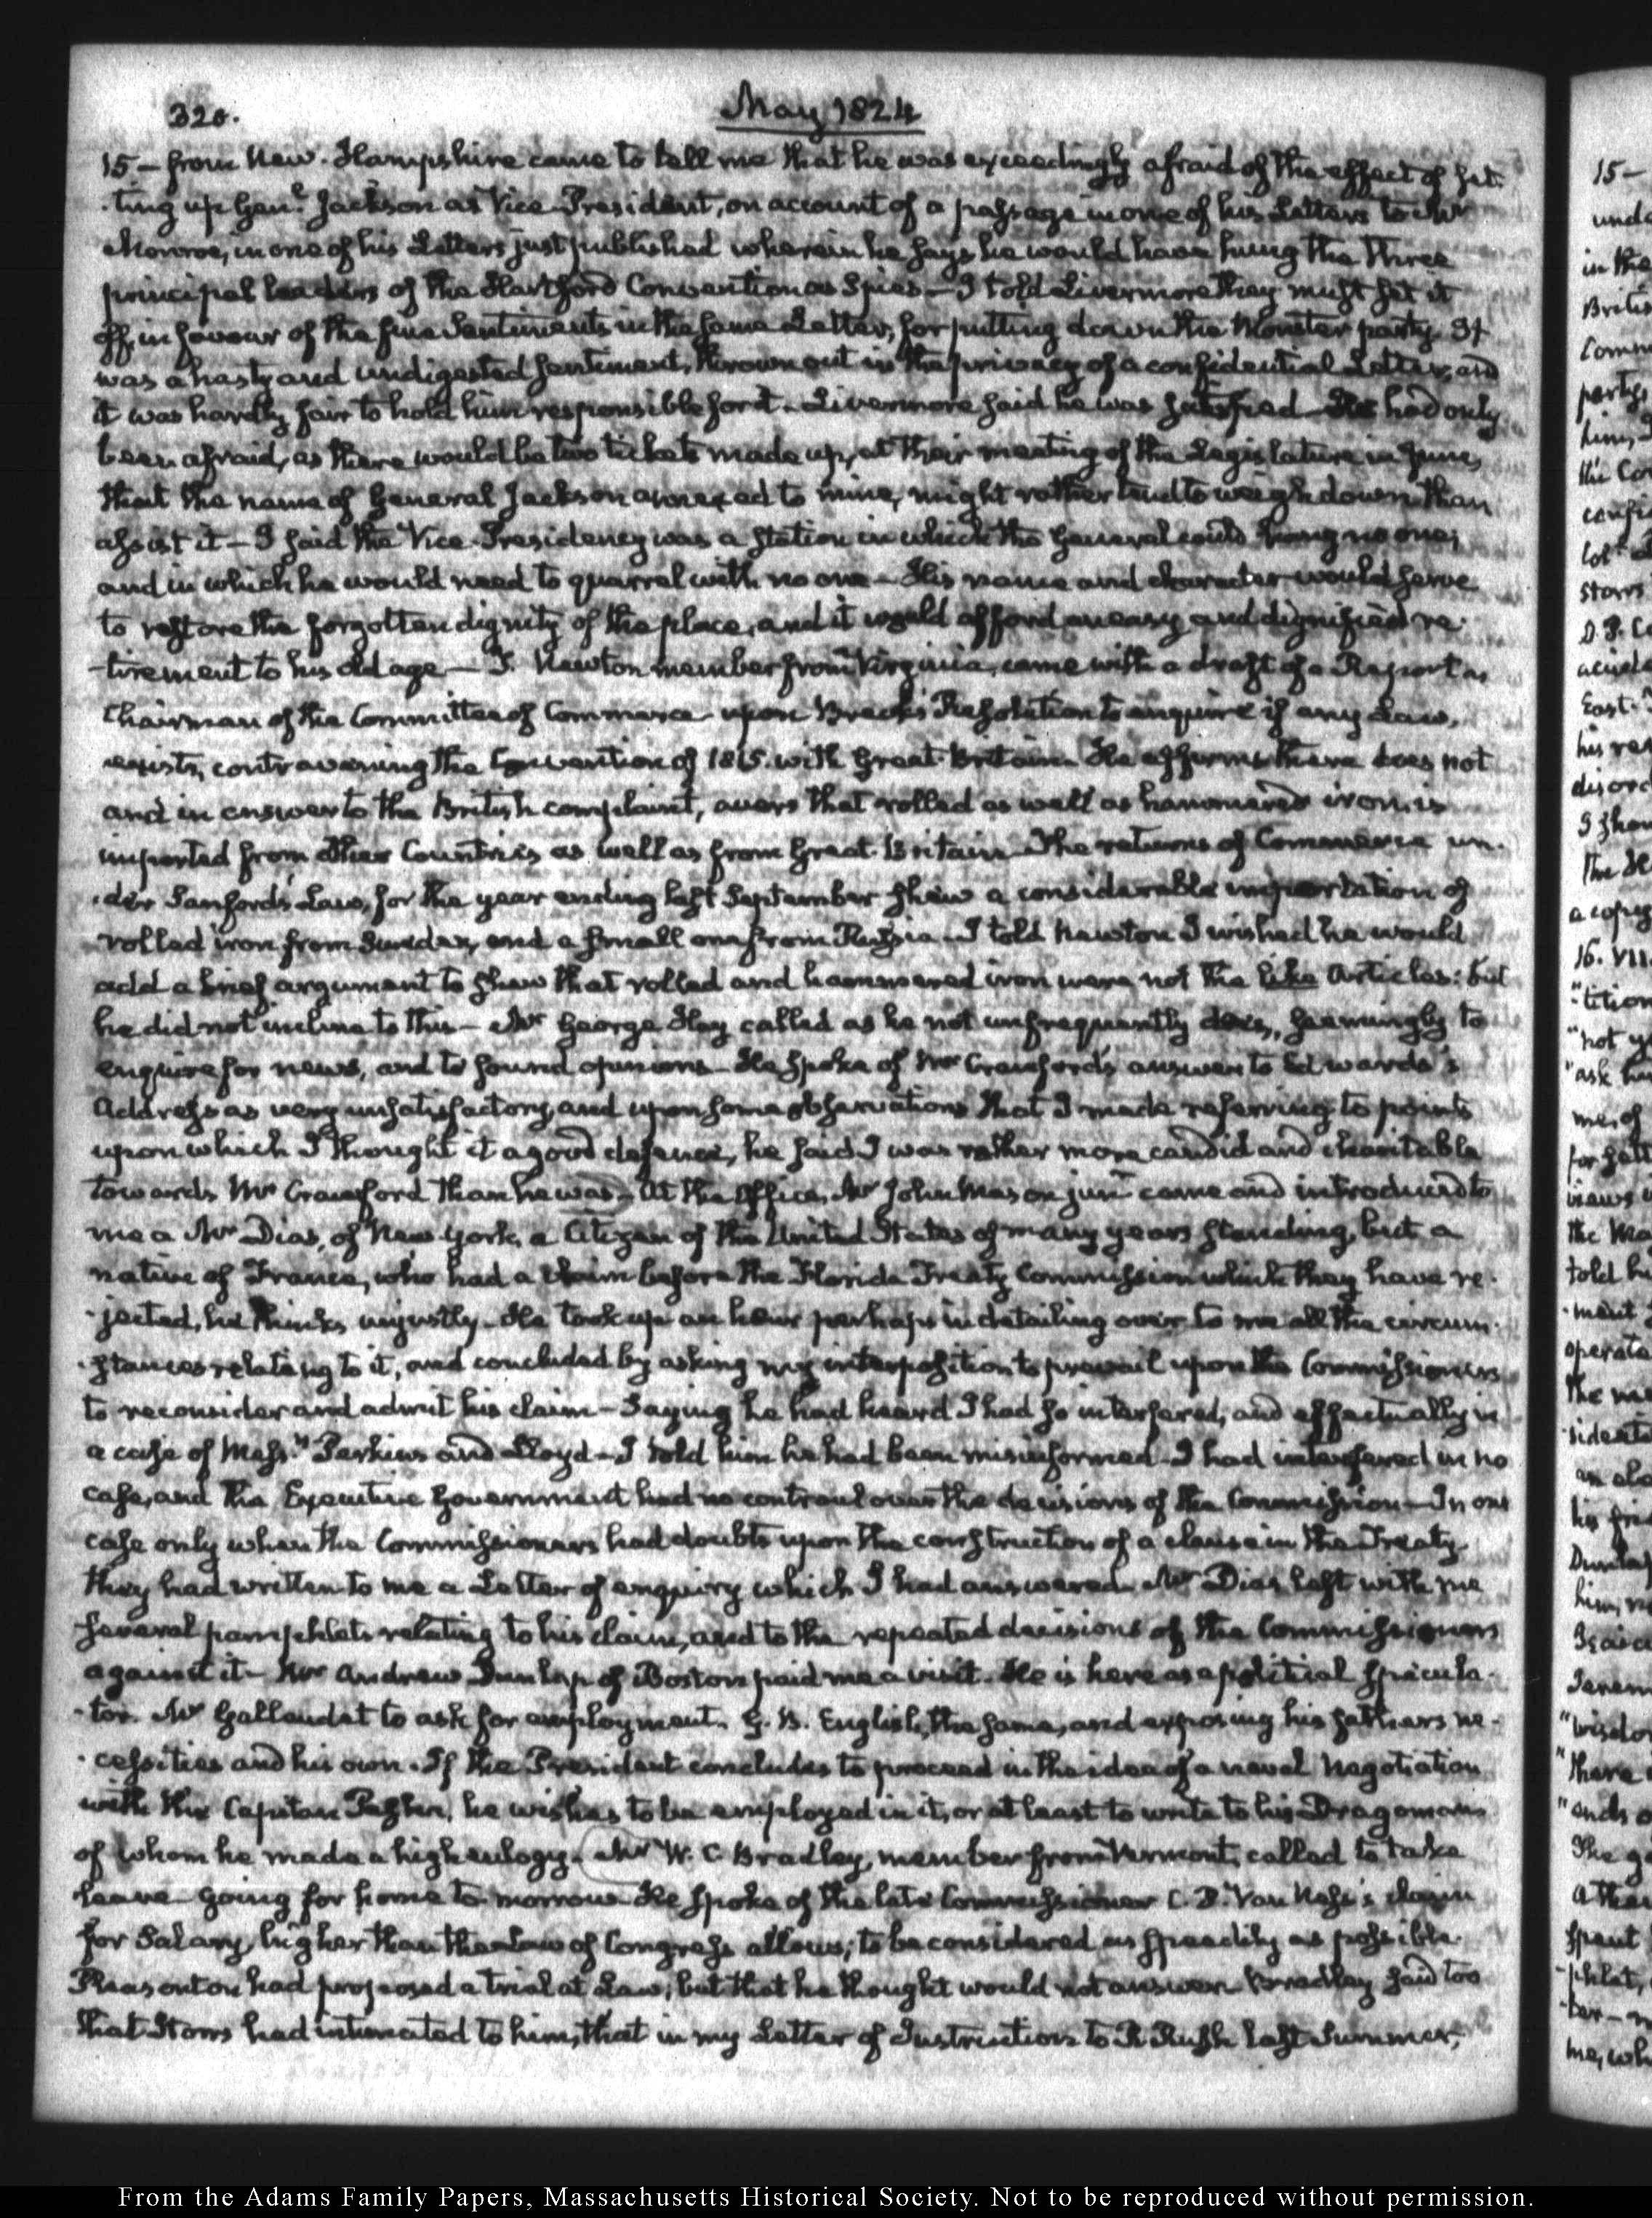 320.
May 1824
15 — from New-Hampshire came to tell me that he was exceedingly afraid of the effect of set-
ting up Genl. Jackson as Vice-President, on account of a passage in one of his Letters to Mr
Monroe, in one of his Letters just published wherein he says he would have hung the three
principal leaders of the Hartford Convention as Spies — I told Livermore they must set it
off, in favour of the fine sentiments in the same Letter, for putting down the Monster party. It
was a hasty and undigested sentiment, thrown out in the privacy of a confidential Letter, and
it was hardly fair to hold him responsible for it. Livermore said he was satisfied — He had only
been afraid, as there would be two tickets made up, at their meeting of the Legislature in June,
that the name of General Jackson annexed to mine, might rather tend to weigh down than
assist it — I said the Vice-Presidency was a station in which the General could hang no one;
and in which he would need to quarrel with no one — His name and character would serve
to restore the forgotten dignity of the place, and it would afford an easy and dignified re-
-tirement to his old age — T. Newton member from Virginia, came with a draft of a Report as
Chairman of the Committee of Commerce upon Breck's Resolution to enquire if any Law,
exists, contravening the Convention of 1815. with Great-Britain. He affirms there does not
and in answer to the British complaint, avers that rolled as well as hammered iron is
imported from other Countries as well as from Great-Britain. The returns of Commerce un-
-der Sanford's Law, for the year ending last September shew a considerable importation of
rolled iron from Sweden, and a small one from Russia — I told Newton I wished he would
add a brief argument to shew that rolled and hammered iron were not the like Articles: but
he did not incline to this — Mr George Hay called as he not unfrequently does, seemingly to
enquire for news, and to sound opinions — He spoke of Mr Crawford's answer to Edwards's
Address as very unsatisfactory, and upon some observations that I made referring to points
upon which I thought it a good defence, he said I was rather more candid and charitable
towards Mr Crawford than he was — At the Office, Mr John Mason junr came and introduced to
me a Mr Dias, of New-York, a Citizen of the United States of many years standing, but a
native of France, who had a claim before the Florida Treaty Commission which they have re-
-jected, he thinks unjustly. He took up an hour perhaps in detailing over to me all the circum-
-stances relating to it, and concluded by asking my interposition to prevail upon the Commissioners
to reconsider and admit his claim — Saying he had heard I had so interfered, and effectually in
a case of Messrs. Perkins and Lloyd — I told him he had been misinformed — I had interfered in no
case, and the Executive Government had no controul over the decisions of the Commission — In one
case only when the Commissioners had doubts upon the construction of a clause in the Treaty
they had written to me a Letter of enquiry which I had answered. Mr Dias left with me
several pamphlets relating to his claim, and to the repeated decisions of the Commissioners
against it — Mr Andrew Dunlap of Boston paid me a visit. He is here as a political specula-
-tor. Mr Gallaudet to ask for employment. G. B. English, the same, and exposing his father's ne-
-cessities and his own. If the President concludes to proceed in the idea of a naval Negotiation
with the Capitan Pasha, he wishes to be employed in it, or at least to write to his Dragoman
of whom he made a high eulogy. Mr W. C. Bradley, member from Vermont, called to take
leave — going for home to-morrow. He spoke of the late Commissioner C. P. Van Ness's claim
for Salary, higher than the Law of Congress allows; to be considered as speedily as possible.
Pleasonton had proposed a trial at Law; but that he thought would not answer. Bradley said too
that Storrs had intimated to him, that in my Letter of Instructions to R Rush last Summer,
15 —
und
in the
Britis
Comm
party
him,
the
confi
Storrs
East
his
disor
I shou
a copy
16. VII.
"tition
"not y
"ask hi
me, of
views
told h
ment
operate
his frie
Dunlap
him,
"wisdo
"there
"ends o
spent
me, wh
From the Adams Family Papers, Massachusetts Historical Society. Not to be reproduced without permission.